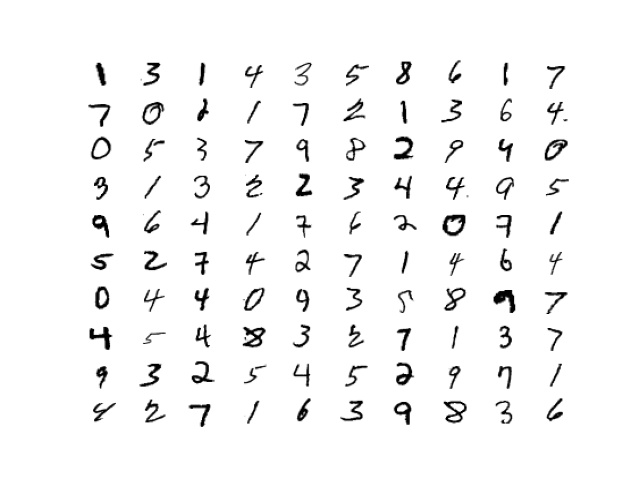 1 3 1 4 3 5 8 6 1 7
7 0 2 1 7 2 1 3 6 4
0 5 3 7 9 8 2 9 4 0
3 1 3 2 2 3 4 4 9 5
9 6 4 1 7 6 2 0 7 1
5 2 7 4 2 7 1 4 6 4
0 4 4 0 9 3 5 8 9 7
4 5 4 8 3 2 7 1 3 7
9 3 2 5 4 5 2 9 7 1
4 2 7 1 6 3 9 8 3 6